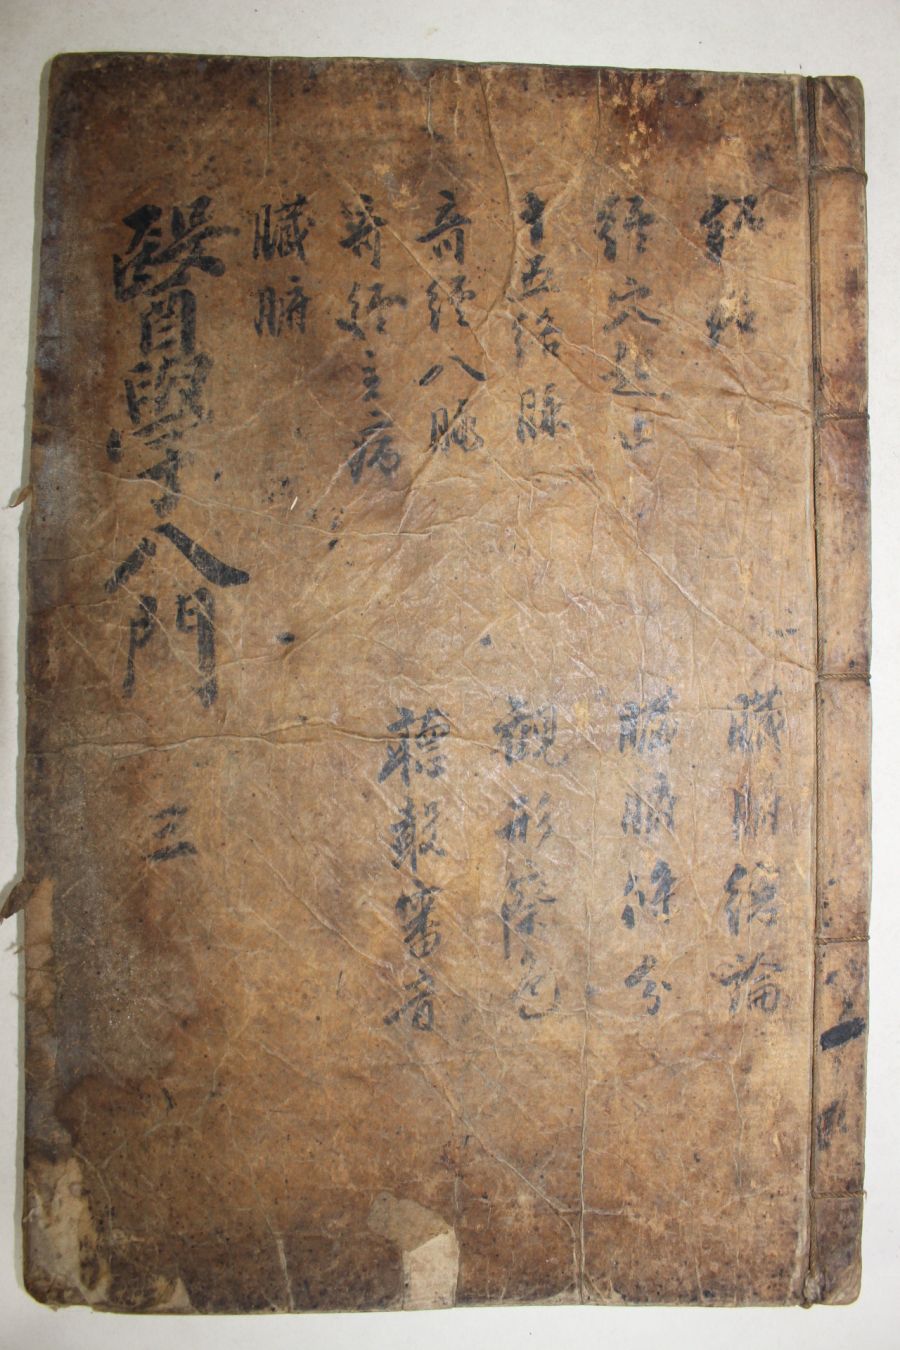 經穴起止
十五絡脉
奇經八脉
奇經主病
臟腑
臟腑總論
臟腑條分
觀形察色
聽聲審音
醫學入門
三